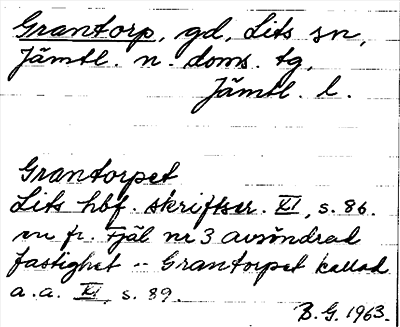 Grantorp, gd, Lits sn,
Jämtl. n. doms. tg,
Jämtl. l.
Grantorpet
Lits hbf. skriftser. XI, s. 86.
en fr. Fjäl nr 3 avsöndrad
fastighet -- Grantorpet kallad
a.a. XI, s. 89.
B.G. 1963.